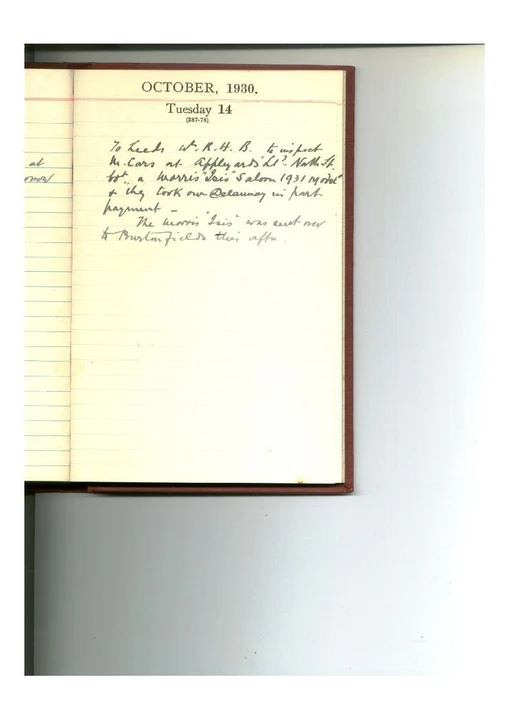 OCTOBER, 1930.
Tuesday 14
(287-78)
To Leeds wh R. H. B. to inspect
M. Cars at Appleyards Ltd. North St.
bot. a Morris "Isis" Saloon 1931 Model
& they took our Delaunay in part
payment –
The Morris "Isis" was sent over
to Burtonfields this aftn.
at